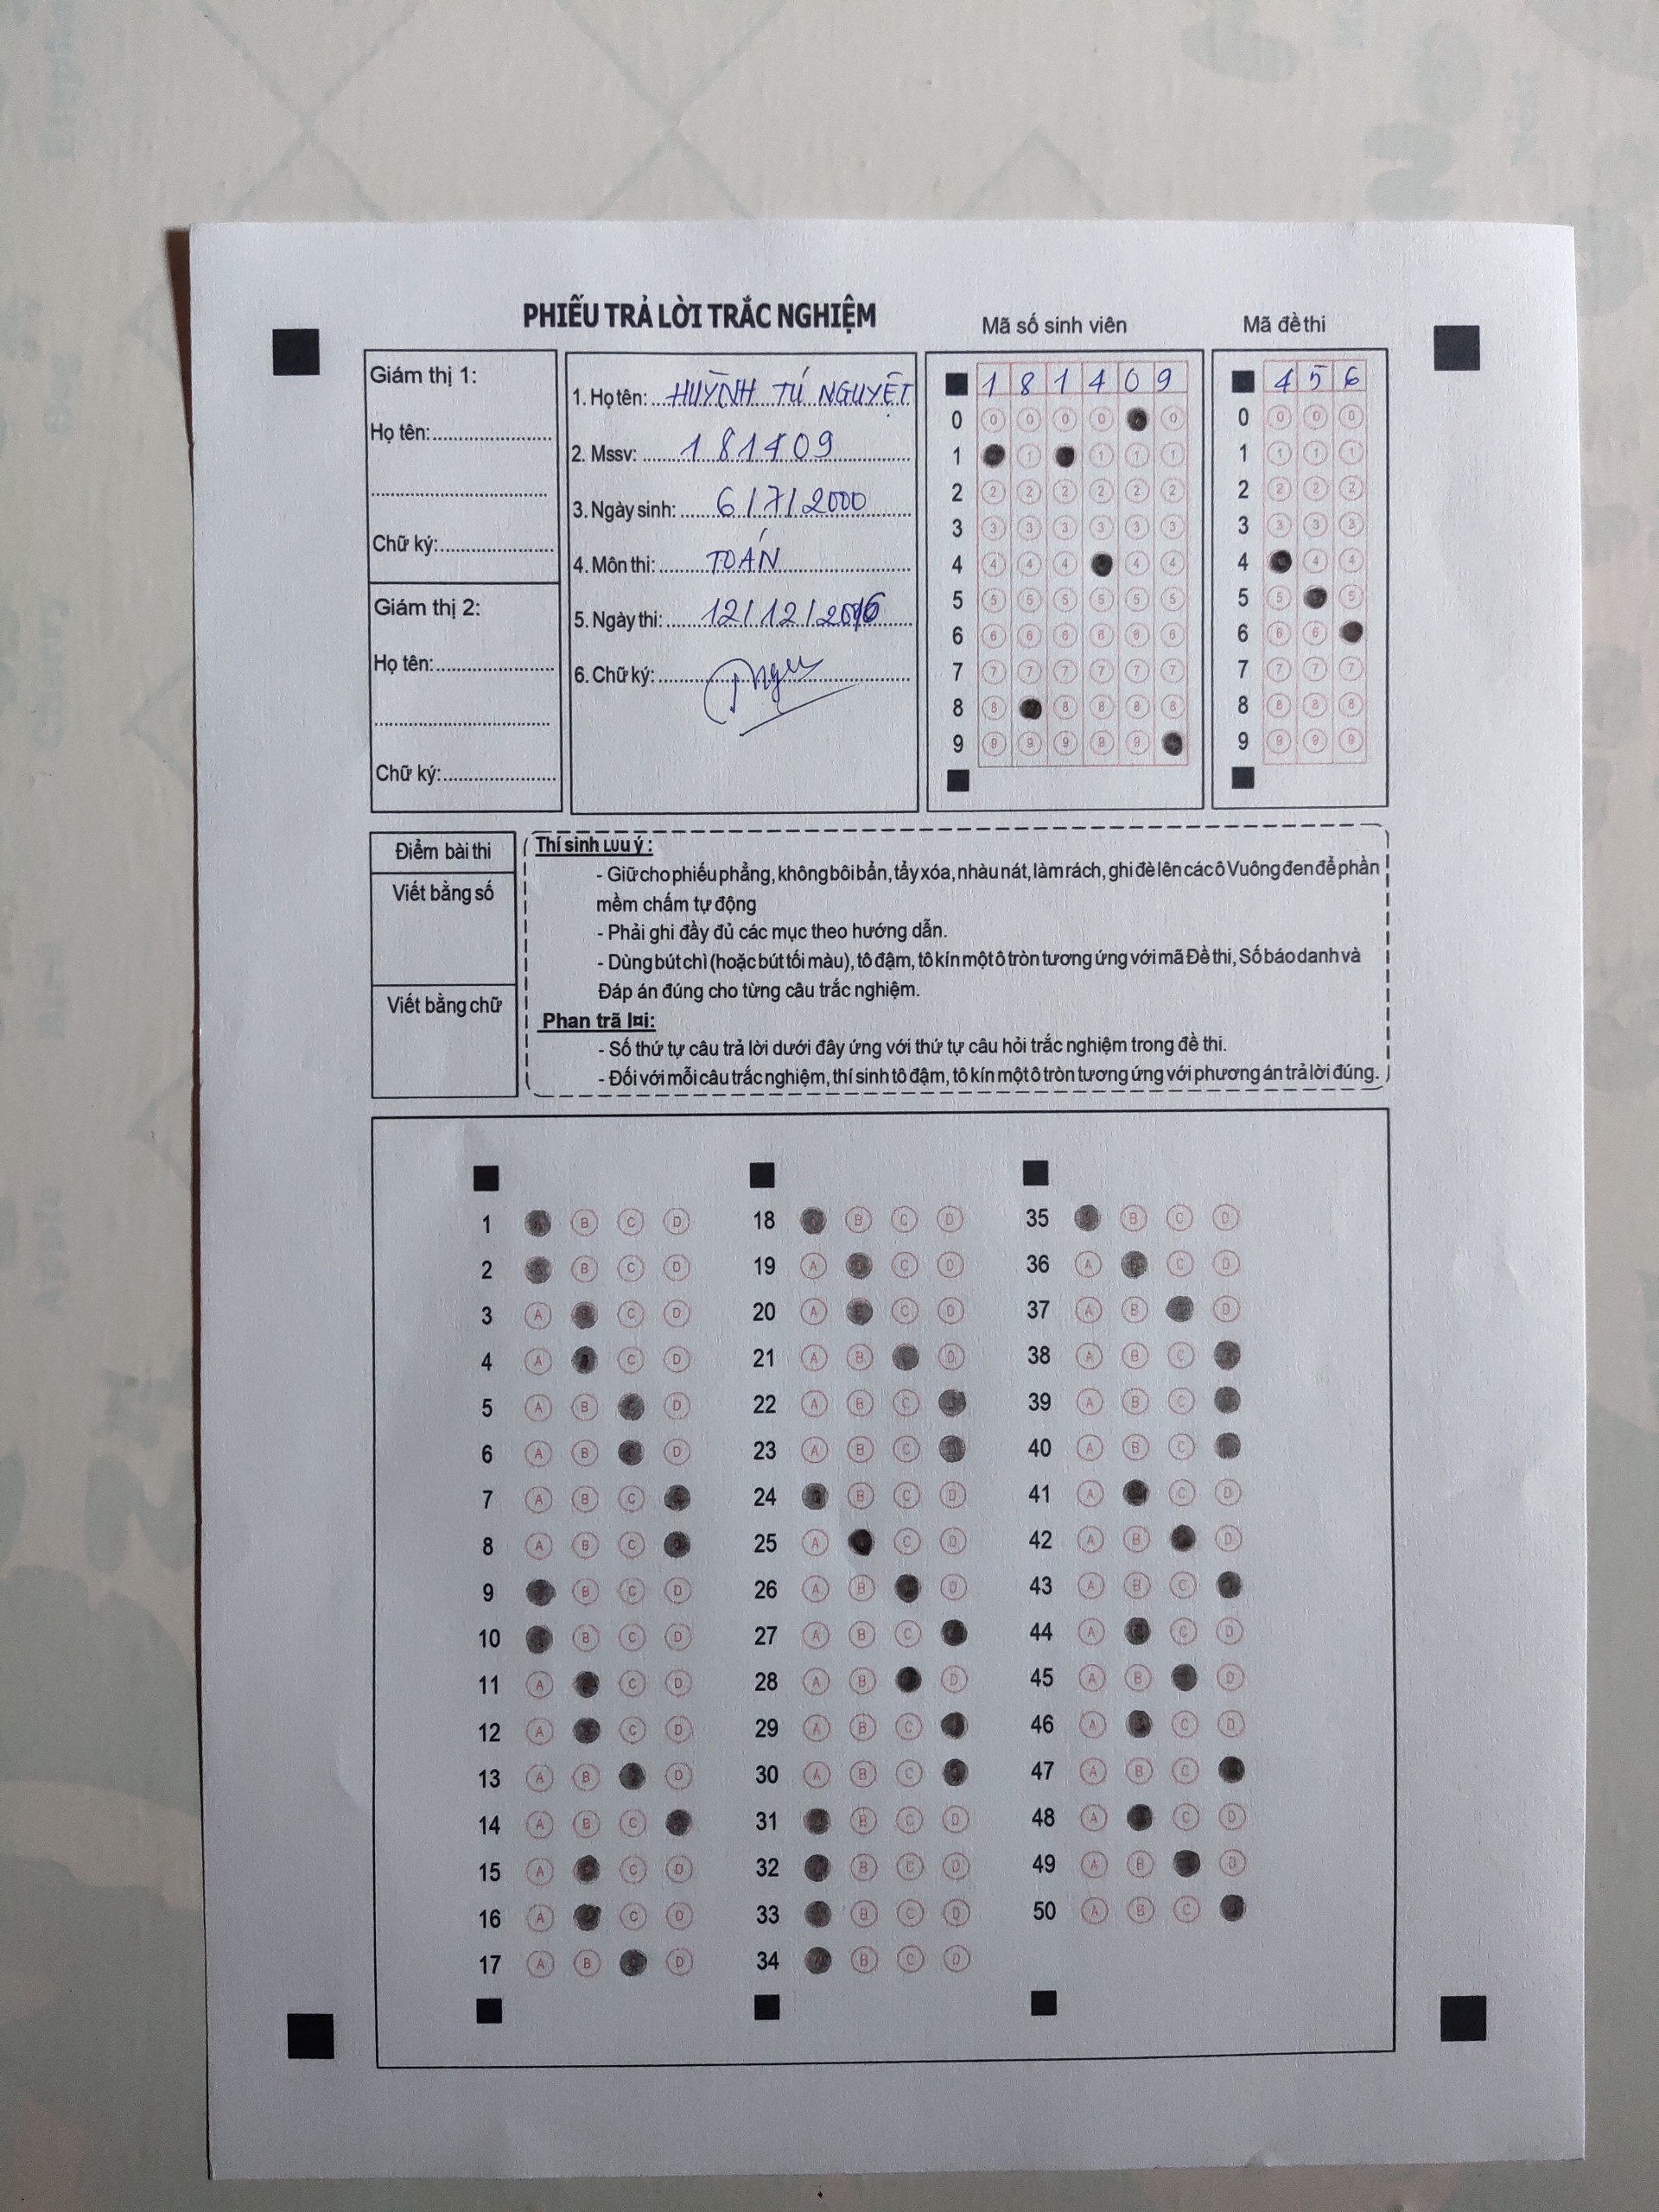 PHIẾU TRẢ LỜI TRẮC NGHIỆM
Mã số sinh viên
Mã đề thi
Giám thị 1:
Họ tên:
Chữ ký:
Giám thị 2:
Họ tên:
Chữ ký:
1. Họ tên: HUỲNH TÚ NGUYỆT
2. Mssv: 181409
3. Ngày sinh: 6/7/2000
4. Môn thi: TOÁN
5. Ngày thi: 12/12/
6. Chữ ký:
1 8 1 4 0 9
0 0 0 0 0 0
1 1 1 1
2 2 2 2 2 2 2
3 3 3 3 3 3 3
4 4 4 4 4 4
5 5 5 5 5 5 5
6 6 6 6 6 6 6
7 7 7 7 7 7 7
8 8 8 8 8 8
9 9 9 9 9 9
4 5 6
0 0 0 0
1 1 1 1
2 2 2 2
3 3 3 3
4 4 4
5 5 5
6 6 6
7 7 7 7
8 8 8 8
9 9 9 9
Điểm bài thi
Viết bằng số
Viết bằng chữ
Thí sinh Lưu ý :
- Giữ cho phiếu phẳng, không bôi bẩn, tẩy xóa, nhàu nát, làm rách, ghi đè lên các ô Vuông đen để phần
mềm chấm tự động
- Phải ghi đầy đủ các mục theo hướng dẫn.
- Dùng bút chì (hoặc bút tối màu), tô đậm, tô kín một ô tròn tương ứng với mã Đề thi, Số báo danh và
Đáp án đúng cho từng câu trắc nghiệm.
Phan trã l¤i:
- Số thứ tự câu trả lời dưới đây ứng với thứ tự câu hỏi trắc nghiệm trong đề thi.
- Đối với mỗi câu trắc nghiệm, thí sinh tô đậm, tô kín một ô tròn tương ứng với phương án trả lời đúng.
1 B C D
2 B C D
3 A C D
4 A C D
5 A B D
6 A B D
7 A B C
8 A B C
9 B C D
10 B C D
11 A C D
12 A C D
13 A B D
14 A B C
15 A C D
16 A C D
17 A B D
18 B C D
19 A C D
20 A C D
21 A B D
22 A B C
23 A B C
24 B C D
25 A C D
26 A B D
27 A B C
28 A B D
29 A B C
30 A B C
31 B C D
32 B C D
33 B C D
34 B C D
35 B C D
36 A C D
37 A B D
38 A B C
39 A B C
40 A B C
41 A C D
42 A B D
43 A B C
44 A C D
45 A B D
46 A C D
47 A B C
48 A C D
49 A B D
50 A B C